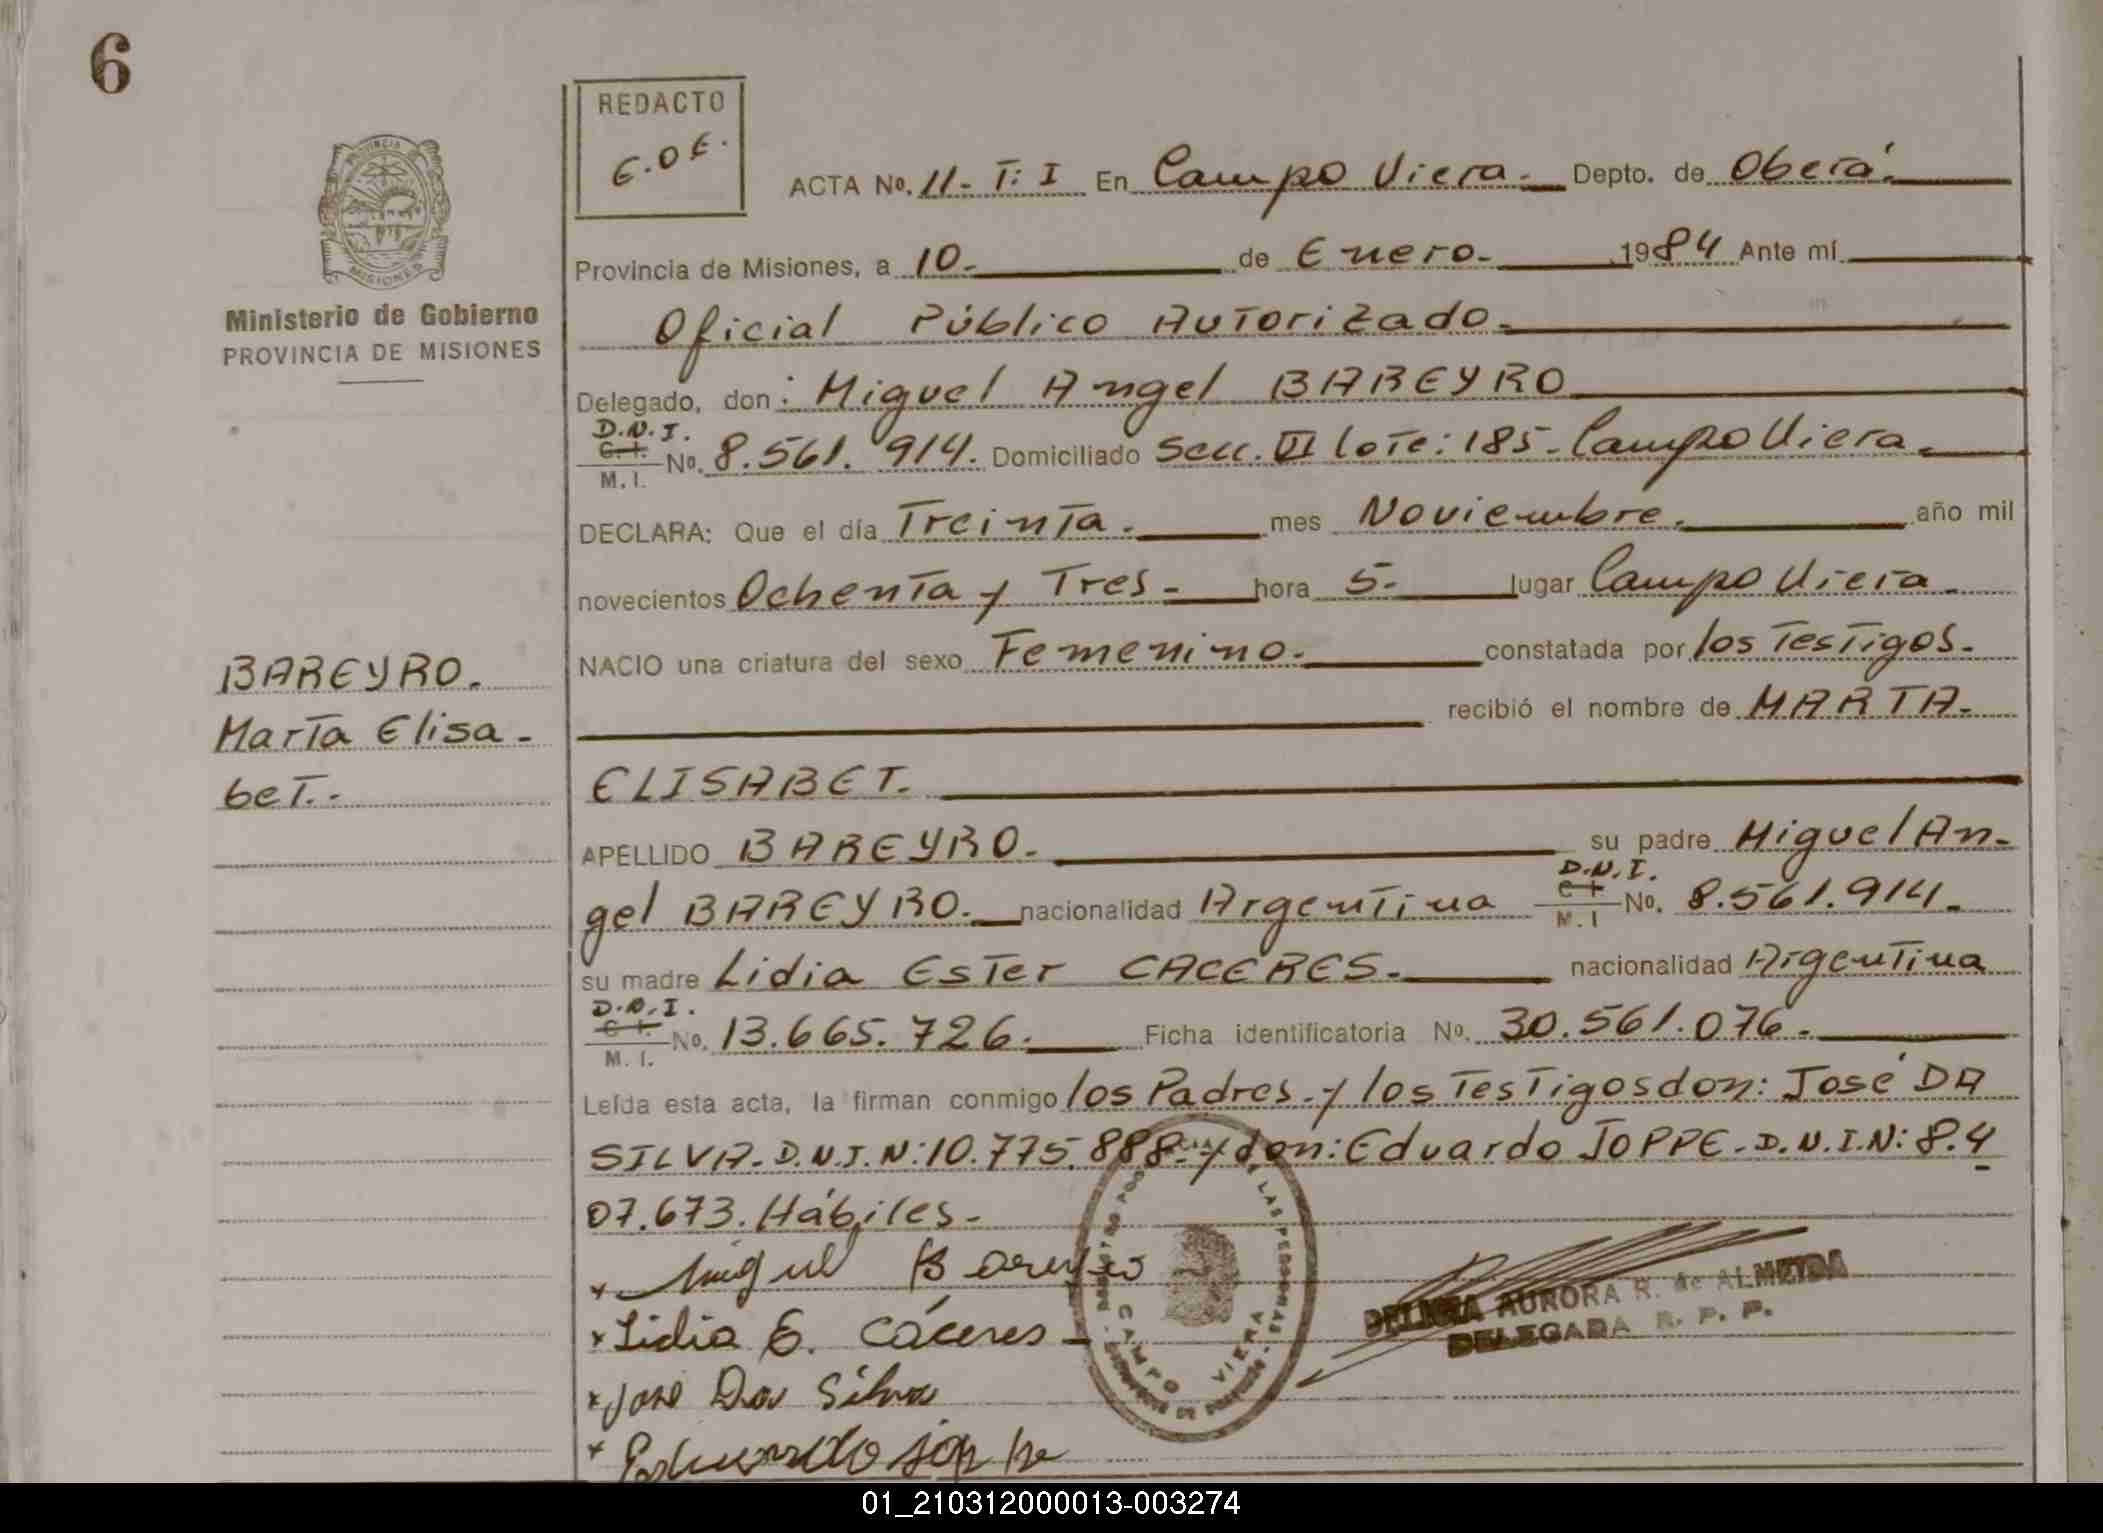 6
REDACTO
E.O.E.
ACTA No. 11- T: I En Campo Viera. Depto. de Oberá.
Provincia de Misiones, a 10. de Enero. 1984 Ante mí
Oficial Público Autorizado.
Delegado, don: Miguel Angel BAREYRO
D.N.I.
C.I.
M.I. No. 8.561.914. Domiciliado Secc. VI lote: 185- Campo Viera.
DECLARA: Que el día Treinta. mes Noviembre. año mil
novecientos Ochenta y Tres. hora 5- lugar Campo Viera
NACIO una criatura del sexo Femenino. constatada por los Testigos.
recibió el nombre de MARTA.
ELISABET.
APELLIDO BAREYRO. su padre Miguel An-
gel BAREYRO. nacionalidad Argentina D.N.I. C.I. M.I No. 8.561.914.
su madre Lidia Ester CACERES. nacionalidad Argentina
D.N.I.
C.I.
M.I. No. 13.665.726. Ficha identificatoria No. 30.561.076.
Leída esta acta, la firman conmigo los Padres.y los Testigos don: José DA
SILVA. D.N.I.N:10.775.888- y don: Eduardo JOPPE. D.N.I.N: 8.4
07.673. Hábiles.
x Miguel Bareyro
x Lidia E. Cáceres
x José Da Silva
x Eduardo Joppe
CAMPO VIERA
AURORA R. de ALMEIDA
DELEGADA R. P. P.
PROVINCIA
MISIONES
Ministerio de Gobierno
PROVINCIA DE MISIONES
BAREYRO.
Marta Elisa-
bet.-
01_210312000013-003274